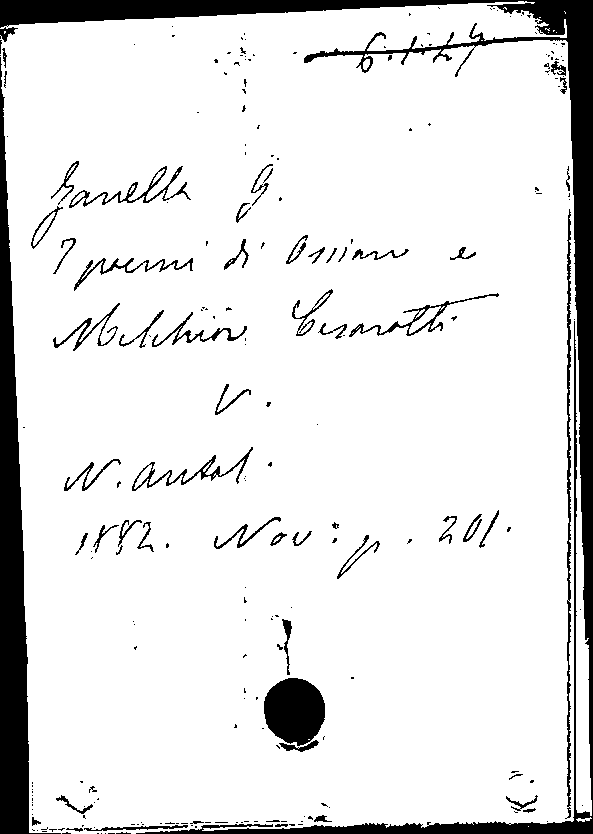 6.1.27
Zanella G.
I poemi di Ossian e
Melchior Cesarotti
V.
N. Antol.
1882. Nov: p. 201.